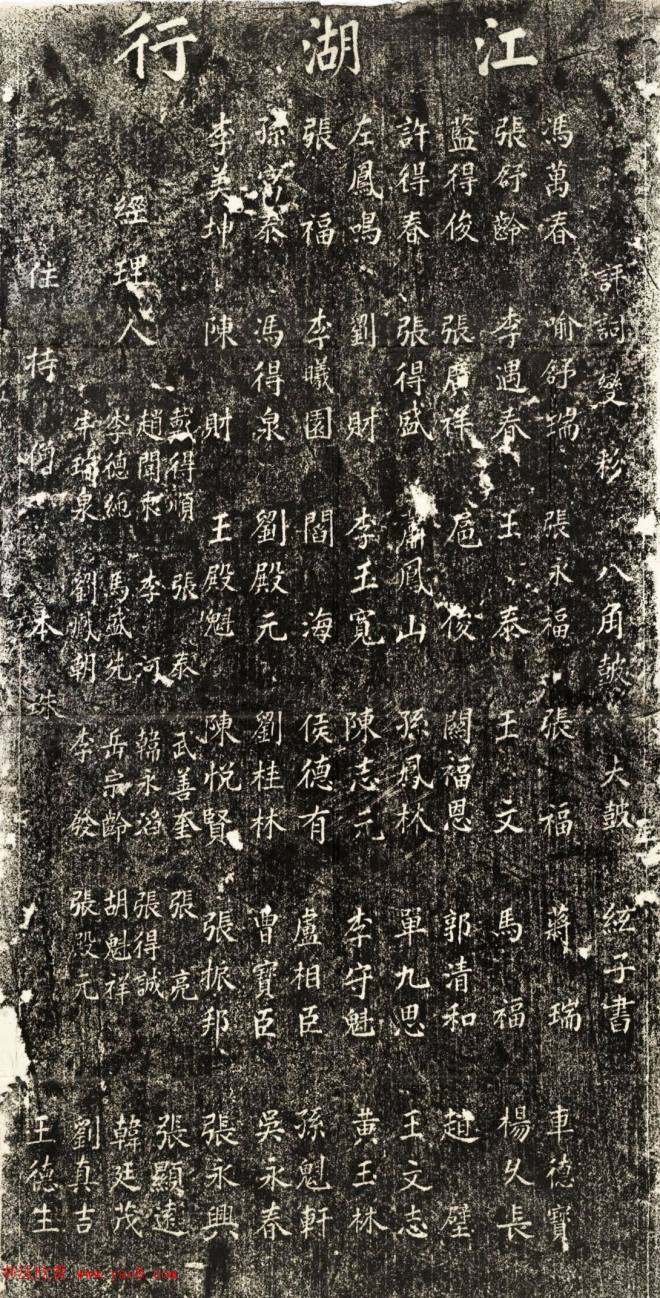 江湖行
評詞 八角鼓 大鼓 絃子書
馮萬春 喻舒瑞 張永福 張福 蔣瑞 車德寶
張舒齡 李遇春 王泰 王文 馬福 楊久長
藍得俊 張廣祥 扈俊 關福恩 郭清和 趙璧
許得春 張得盛 鳳山 孫鳳林 單九思 王文志
左鳳鳴 劉財 李玉寬 陳志元 李守魁 黃玉林
張福 李曦園 閻海 侯德有 盧相臣 孫魁軒
孫富泰 馮得泉 劉殿元 劉桂林 曹寶臣 吳永春
李美坤 陳財 王殿魁 陳悅賢 張振邦 張永興
經理人
戴得順 張泰 武善奎 張亮 張顯遠
趙聞 李河 韓永 張得誠
李德純 馬盛先 岳宗齡 胡魁祥 韓廷茂
瑞泉 劉鳳朝 李發 張殿元 劉真吉
住持僧 本珠 王德生
www.yac8.com